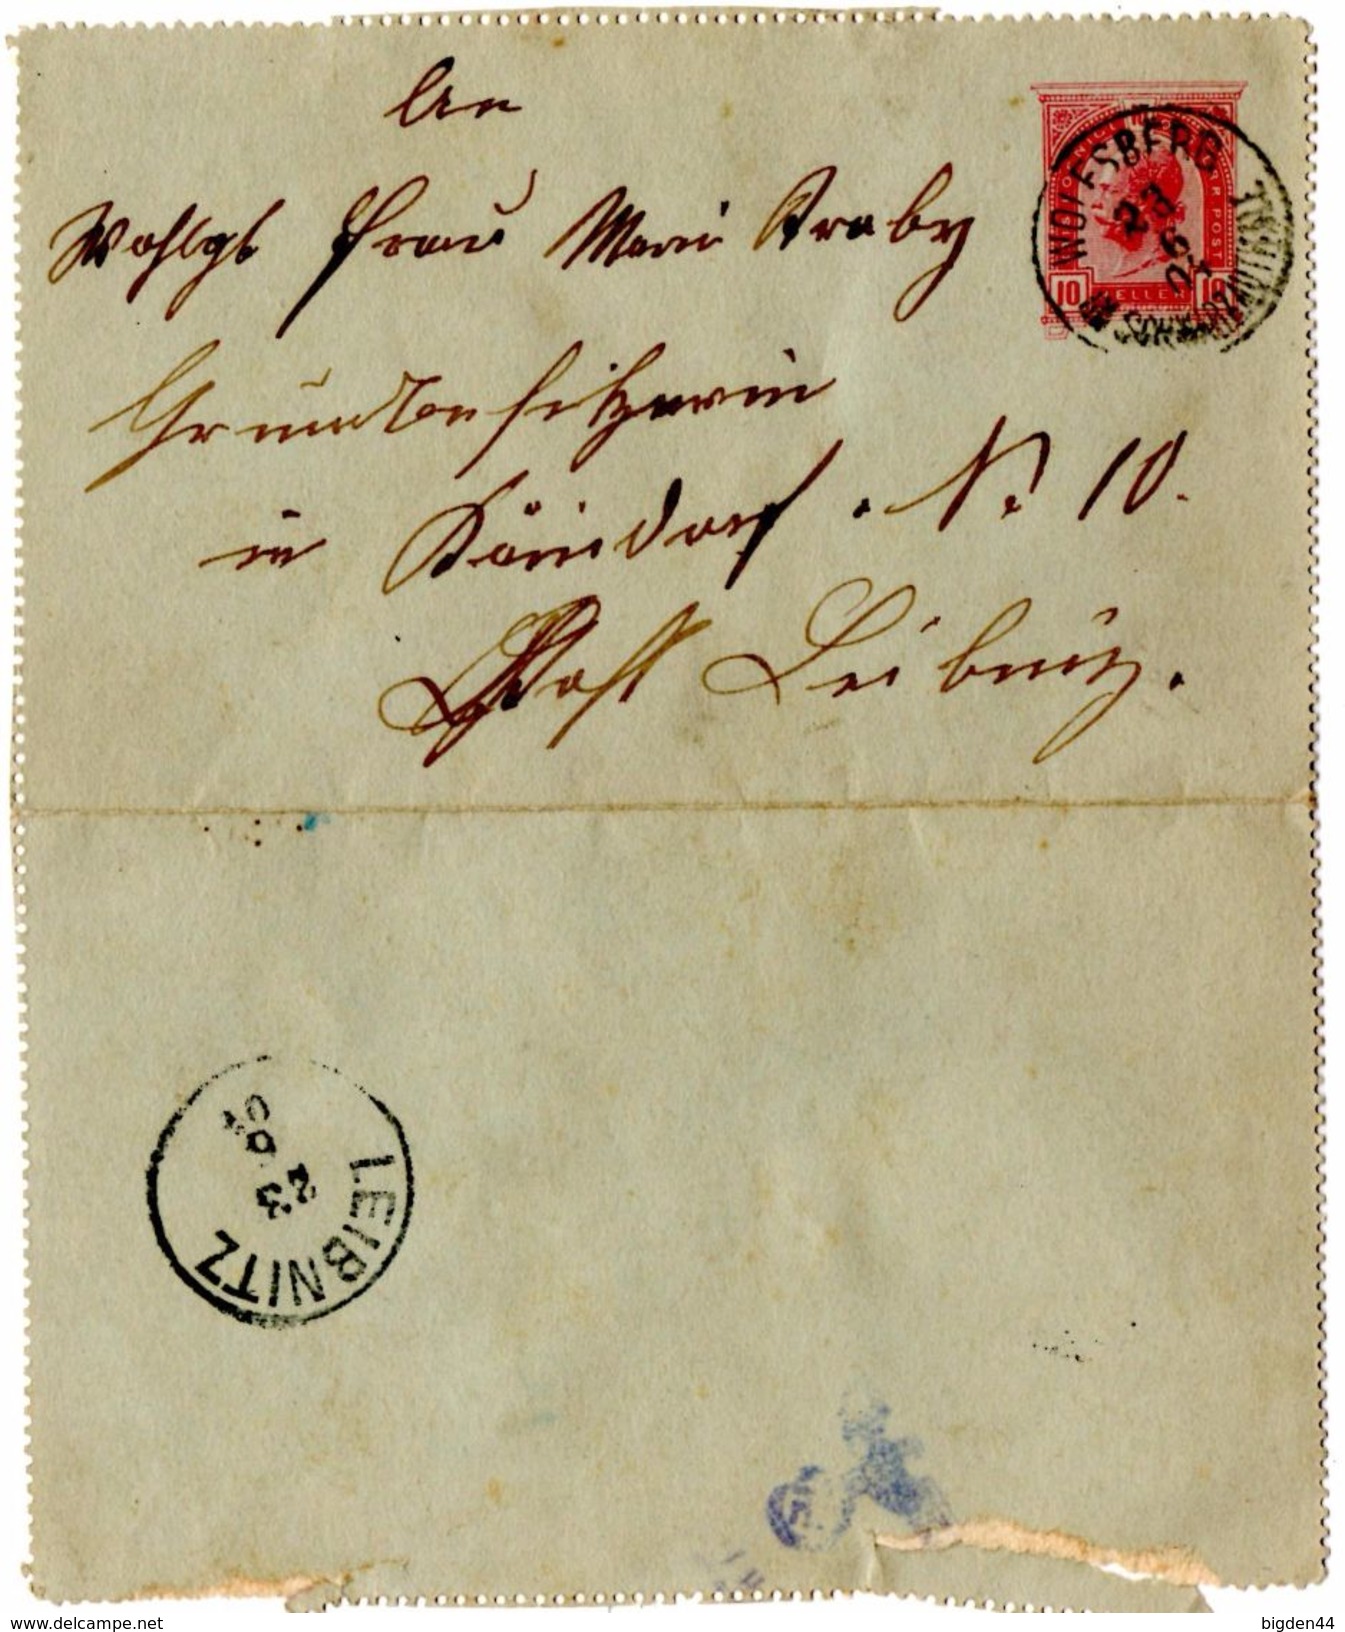 An
Wohlgb Frau Marie Straby
Grundbesitzerin
in Känidorf . N. 10.
Post Leibnitz.
10 HELLER 10
WOLFSBERG
23
6
04
LEIBNITZ
23
6
04
delcampe.net
bigden44